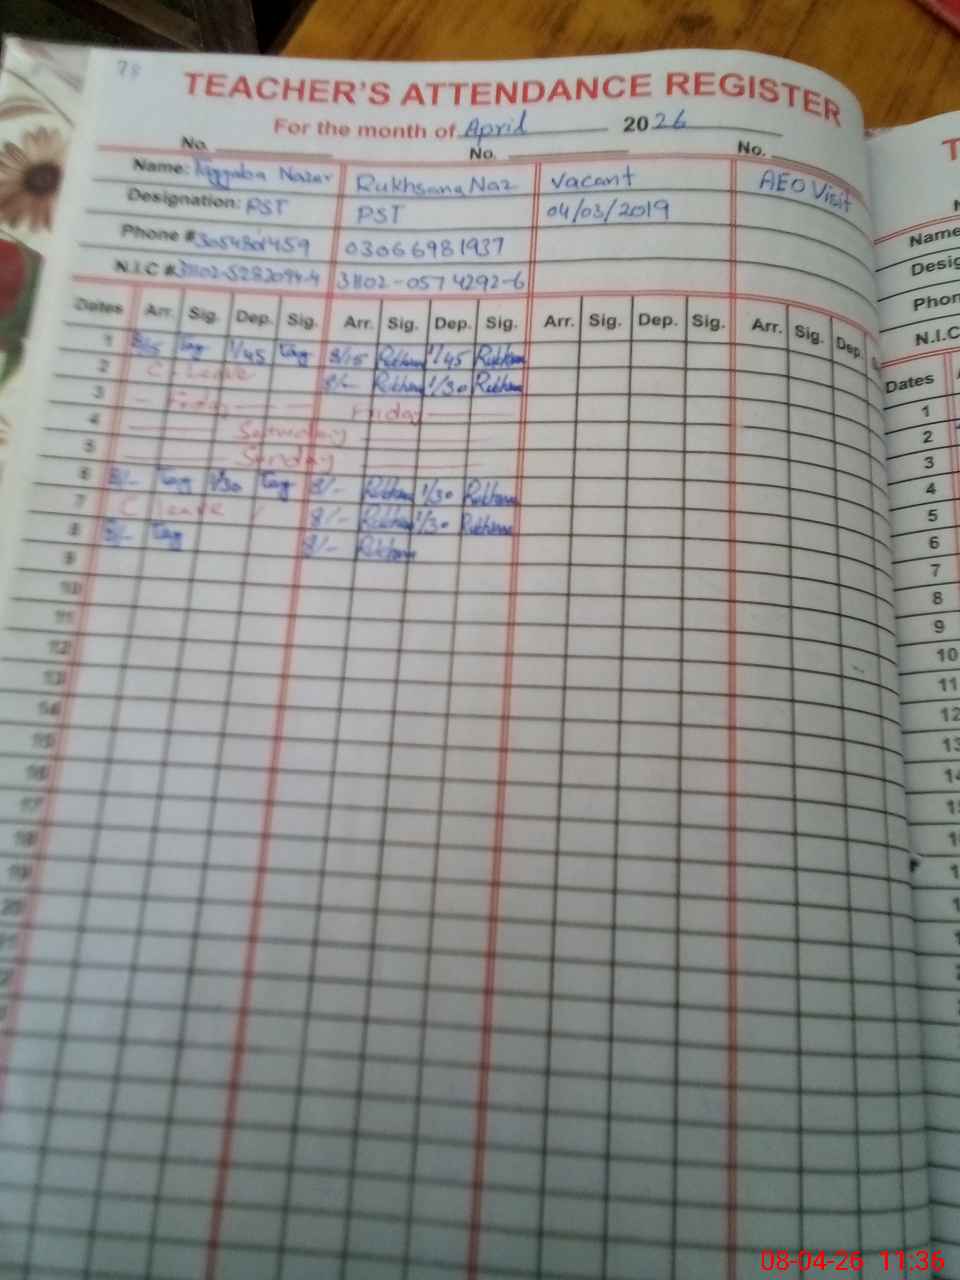 78
TEACHER'S ATTENDANCE REGISTER
For the month of April 2026
No. No. No.
Name: Nazar Rukhsana Naz vacant AEO Visit
Designation: PST PST 04/03/2019
Phone # 03066981937
N.I.C # 31102-0574292-6
Dates Arr. Sig. Dep. Sig. Arr. Sig. Dep. Sig. Arr. Sig. Dep. Sig. Arr. Sig. Dep.
1 8/15 1/45 8/15 Rukhsana 1/45 Rukhsana
2 C-Leave 8/- Rukhsana 1/30 Rukhsana
3 Friday Friday
4 Saturday
5 Sunday
6 8/- 1/30 8/- Rukhsana 1/30 Rukhsana
7 C leave 8/- Rukhsana 1/30 Rukhsana
8 8/- 8/- Rukhsana
9
10
11
12
13
14
15
16
17
18
19
20
T
Name
Desig
Phon
N.I.C
Dates
1
2
3
4
5
6
7
8
9
10
11
12
13
14
08-04-26 11:36